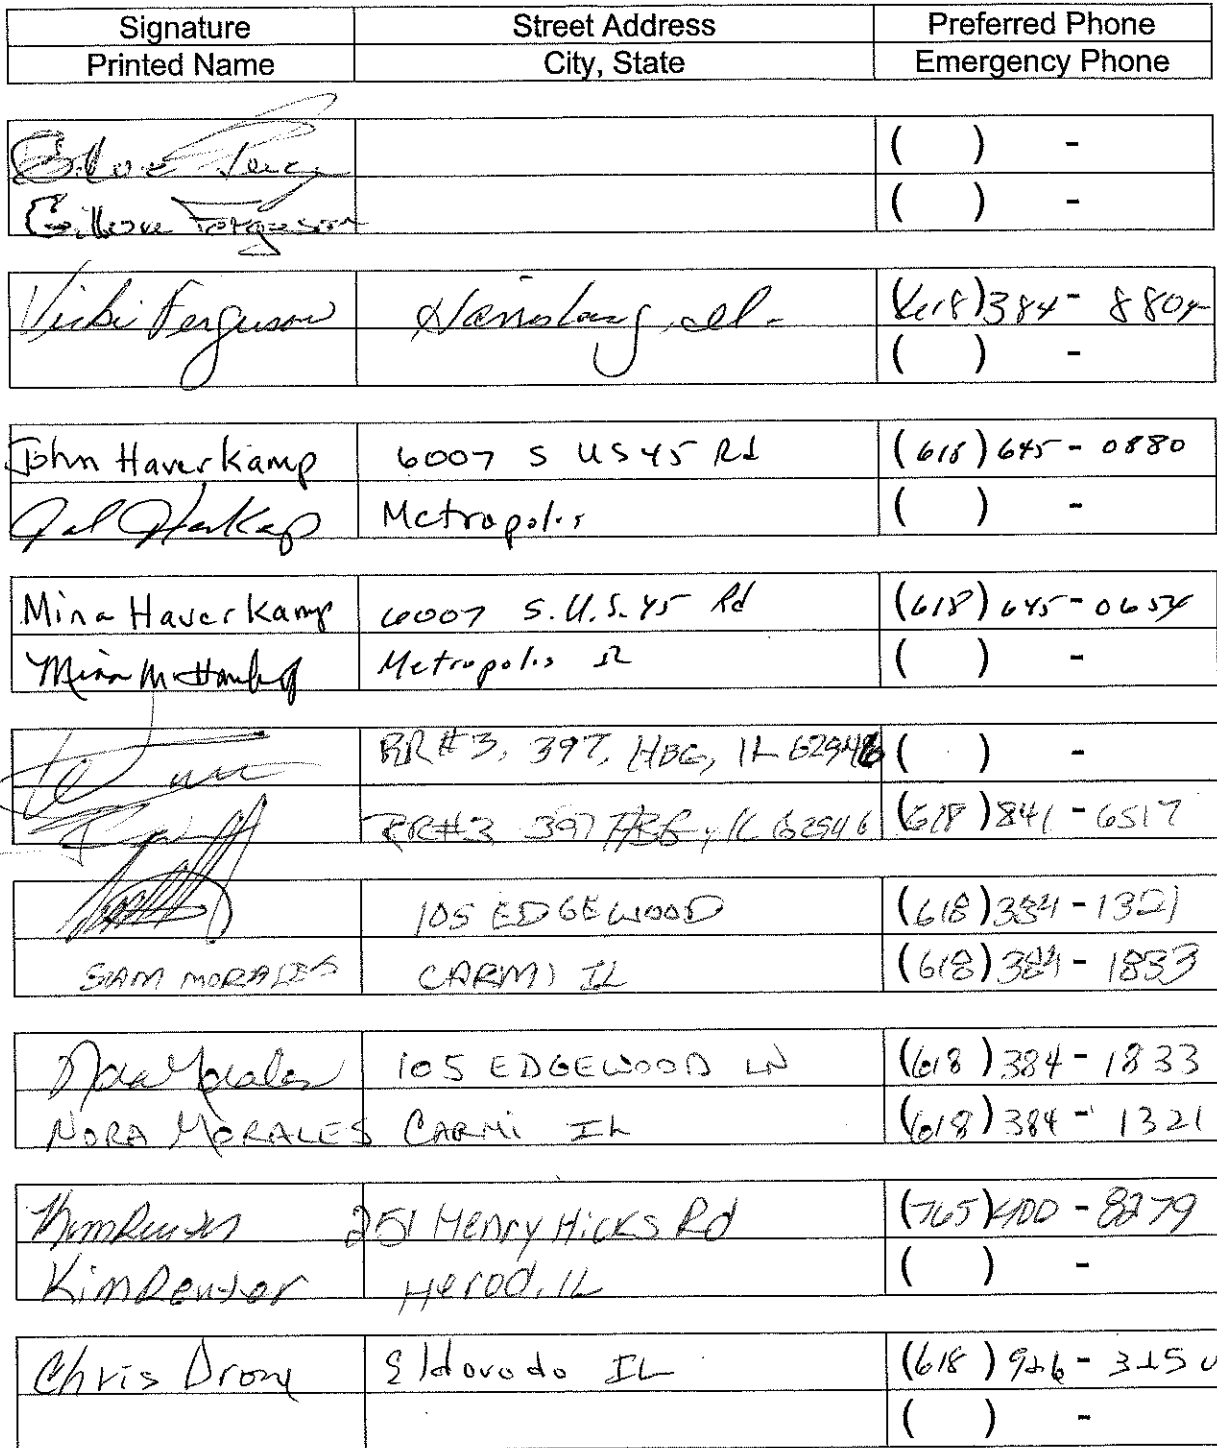 Signature Street Address Preferred Phone
Printed Name City, State Emergency Phone
( ) -
( ) -
Vicki Ferguson Harrisburg, Il. (618)384-8804
( ) -
John Haverkamp 6007 S US 45 Rd (618)645-0880
Metropolis ( ) -
Mina Haverkamp 6007 S.U.S. 45 Rd (618)645-0654
Mina M Metropolis IL ( ) -
RR#3, 397, HBG, IL 62946 ( ) -
RR#3 397 HBG, IL 62946 (618)841-6517
105 EDGEWOOD (618)384-1321
SAM MORALES CARMI IL (618)384-1833
Nora Morales 105 EDGEWOOD LN (618)384-1833
NORA MORALES CARMI IL (618)384-1321
251 Henry Hicks Rd (765)400-8279
Kim Herod, IL ( ) -
Chris Drone Eldorado IL (618)926-3250
( ) -